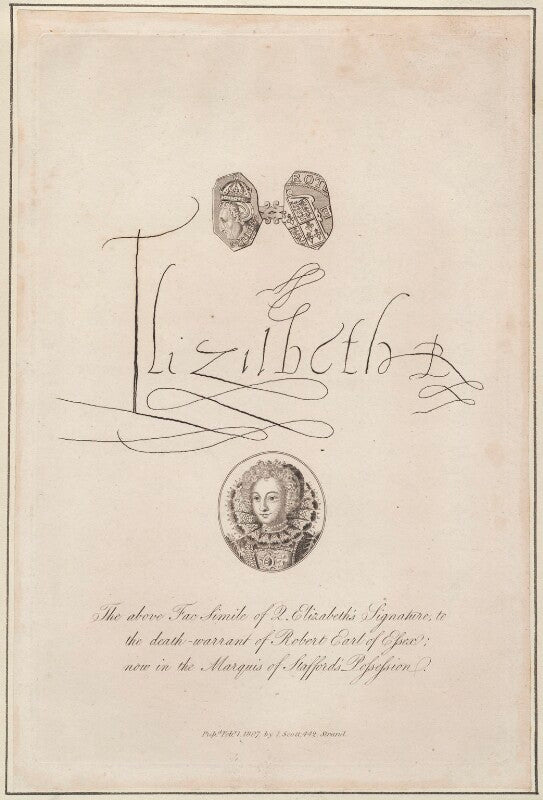 ROT
Elizabeth R
The above Fac Simile of Q. Elizabeth's Signature, to
the death-warrant of Robert Earl of Eſsex;
now in the Marquis of Stafford's Poſseſsion.
Pubd. Feb. 1. 1807, by J. Scott, 442, Strand.